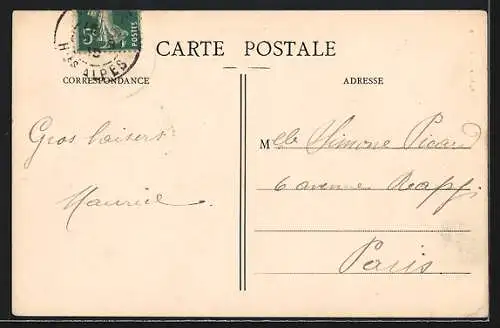 5c
POSTES
Hes ALPES
CARTE POSTALE
CORRESPONDANCE
ADRESSE
Gros baisers
Maurice.
Melle Simone Picard
6 avenue Rapp
Paris